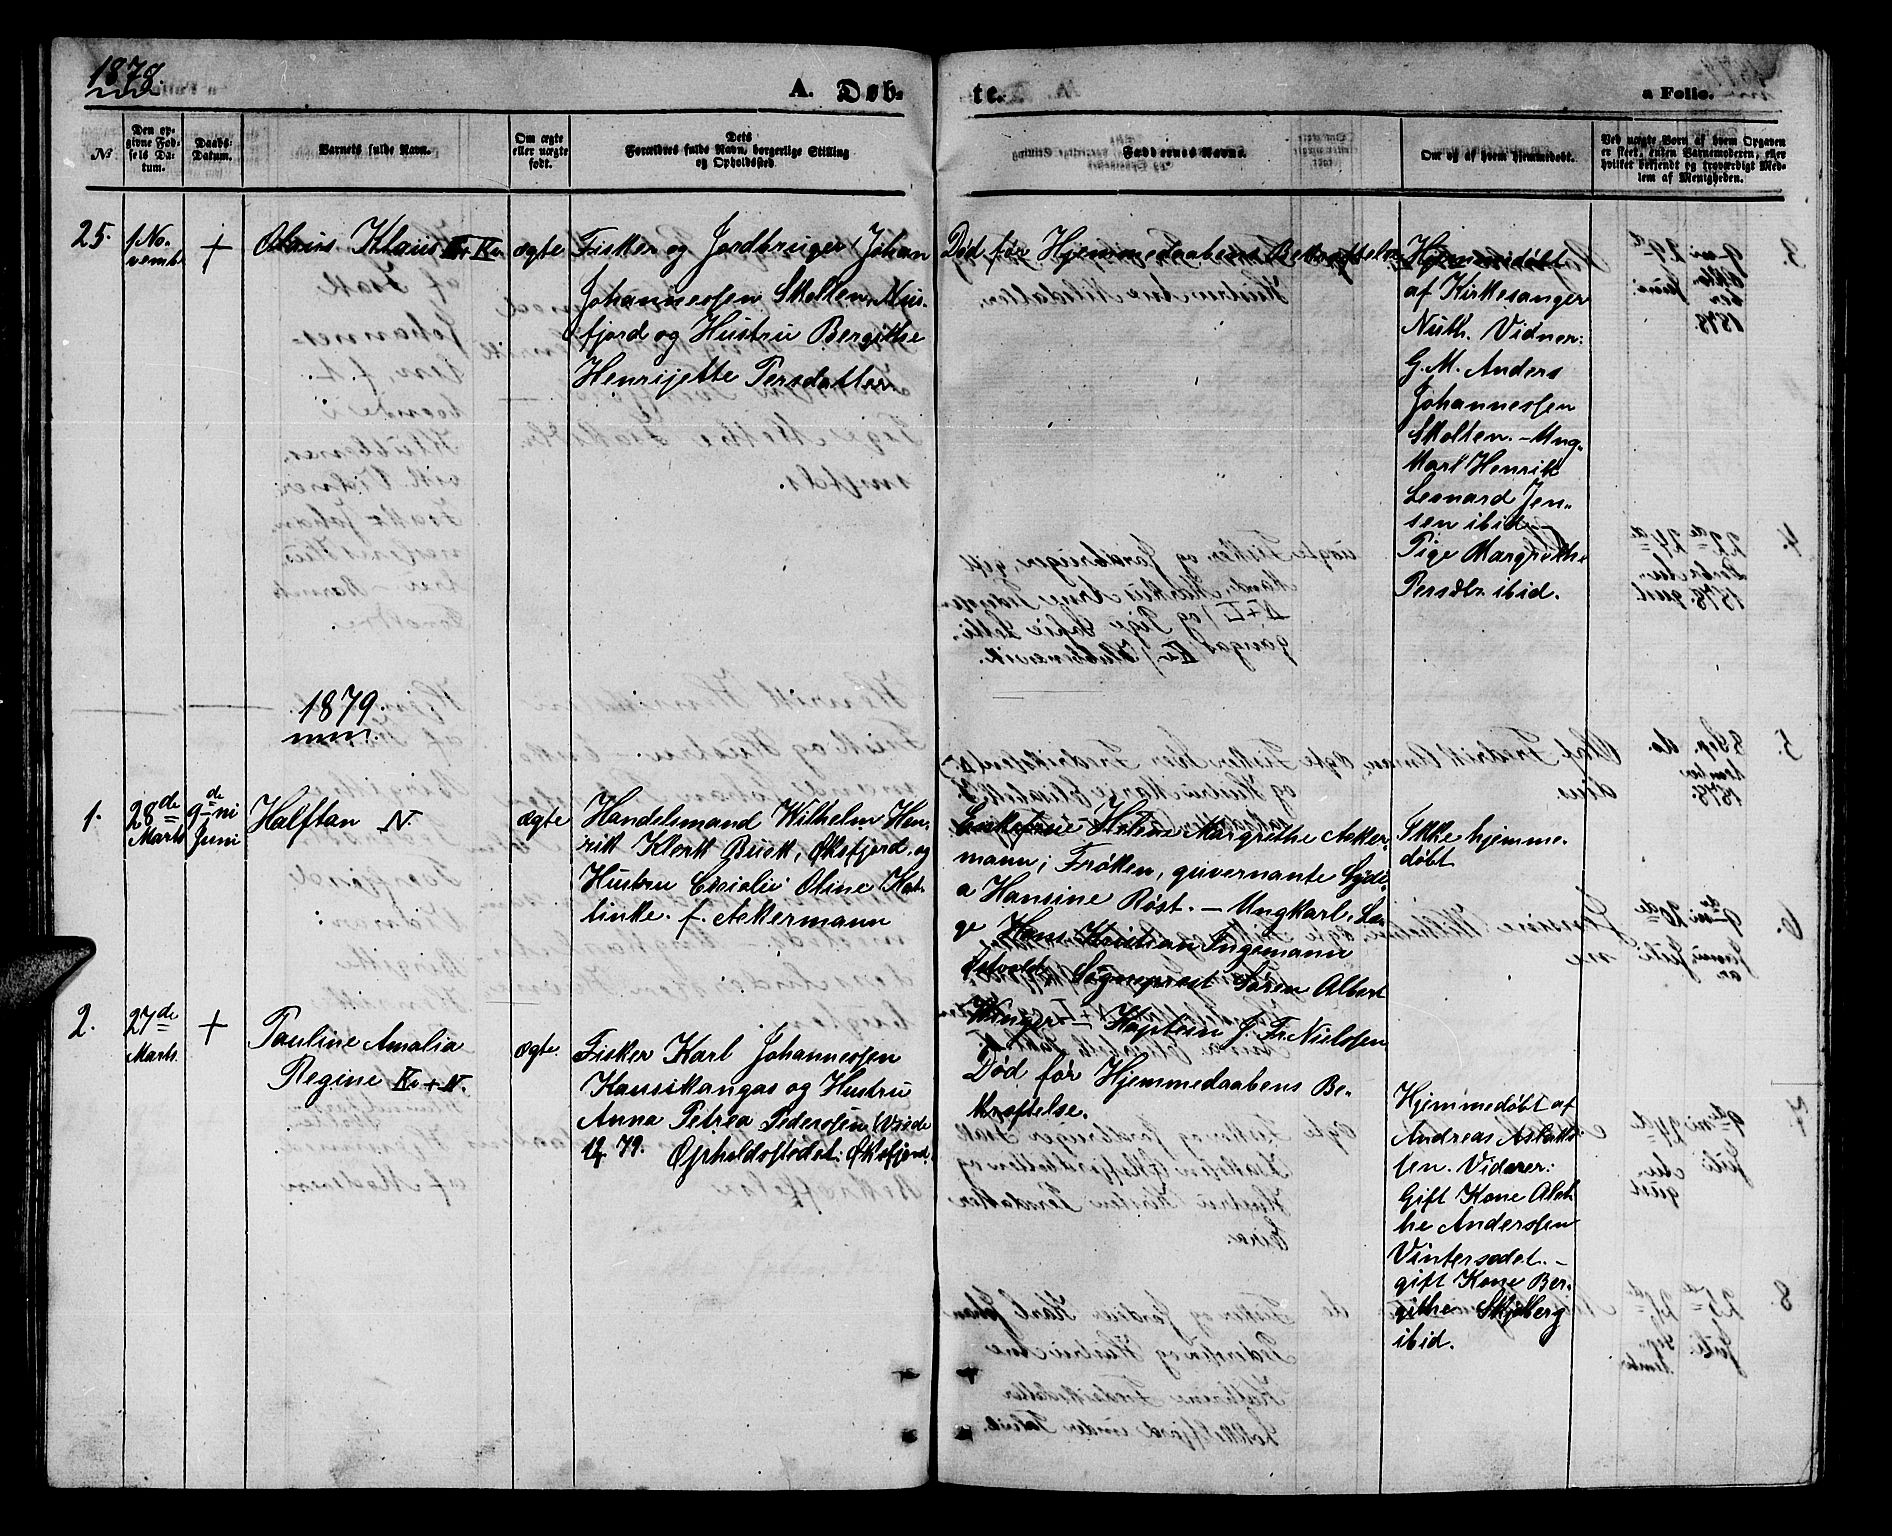 1878.
A. Døb-
te.
a Folio.
№
Den op-
givne Fød-
sels Da-
tum.
Daabs-
Datum.
Barnets fulde Navn.
Om ægte
eller uægte
født.
Dets
Forældres fulde Navn, borgerlige Stilling
og Opholdssted.
Faddernes Navne.
Om og af hvem hjemmedøbt.
Ved uægte Børn af hvem Opgaven
er skeet, enten Barnemoderen, eller
hvilket bekjendt og troværdigt Med-
lem af Menigheden.
25.
1 No-
vembr
+
Olaus Klaus
ægte
Fisker og Jordbruger Johan
Johannessen Skolten, Nus-
fjord og Hustru Bergithe
Henrijette Persdatter
Død før Hjemmedaabens Bekræftelse
Hjemmedøbt
af Kirkesanger
Nuth. Vidner:
G.M. Anders
Johannessen
Skolten. - Ung-
karl Henrik
Leonard Jen-
sen ibid
Pige Margrethe
Persdtr. ibid.
1879.
1.
28de
Marts
9-de ni
Juni
Halftan N.
ægte
Handelsmand Wilhelm Hen-
rik Klerk Buck, Øksfjord og
Hustru Cecialie Oline Kat-
tinke. f. Ackermann
Enkefrue Helene Margrethe Acker-
mann; Frøken, guvernante Lydi-
a Hansine Røst. - Ungkarl, Læ-
ge Hans Kristian Ingemann
Sogneprest Søren Albert
Winger - Kaptein J. Fr. Nielssen
Ikke hjemme-
døbt
2.
27de
Marts
+
Pauline Amalia
Regine Kv + N.
ægte
Fisker Karl Johannessen
Kausikangas og Hustru
Anna Petrea Pederssen
79. Opholdsstedet: Øksfjord.
Død før Hjemmedaabens Be-
kræftelse.
Hjemmedøbt af
Andreas Aslaks-
sen. Vidner:
Gift Kone Alet-
he Anderssen
Vintersædet. -
gift Kone Ber-
githe Skjøberg
ibid.